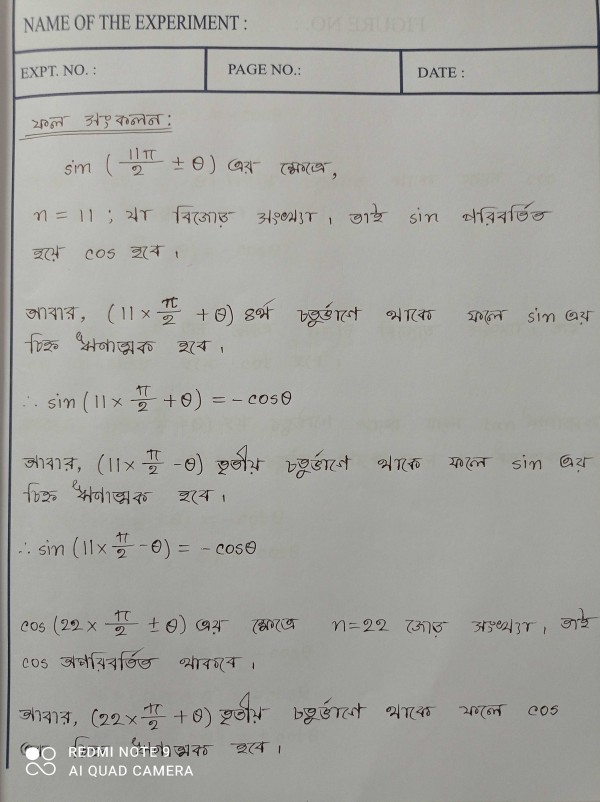 NAME OF THE EXPERIMENT :
EXPT. NO. :
PAGE NO.:
DATE :
ফল সংকলন:
sin ( 11π/2 ± θ ) এর ক্ষেত্রে,
n = 11 ; যা বিজোড় সংখ্যা, তাই sin পরিবর্তিত
হয়ে cos হবে।
আবার, (11 × π/2 + θ) ৪র্থ চতুর্ভাগে থাকে ফলে sin এর
চিহ্ন ঋণাত্মক হবে।
∴ sin (11 × π/2 + θ) = – cosθ
আবার, (11 × π/2 - θ) তৃতীয় চতুর্ভাগে থাকে ফলে sin এর
চিহ্ন ঋণাত্মক হবে।
∴ sin (11 × π/2 - θ) = - cosθ
cos (22 × π/2 ± θ) এর ক্ষেত্রে n = 22 জোড় সংখ্যা, তাই
cos অপরিবর্তিত থাকবে।
আবার, (22 × π/2 + θ) তৃতীয় চতুর্ভাগে থাকে ফলে cos
চিহ্ন ঋণাত্মক হবে।
REDMI NOTE 9
AI QUAD CAMERA